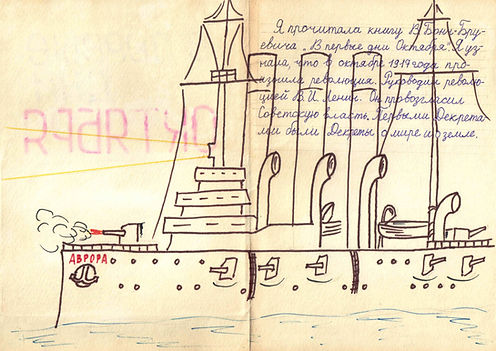 Я прочитала книгу В. Бонч-Бру-
евича „В первые дни Октября". Я уз-
нала, что в октябре 1917 года про-
изошла революция. Руководил револю-
цией В. И. Ленин. Он провозгласил
Советскую власть. Первыми Декрета-
ми были Декреты о мире и о земле.
ОКТЯБРЯ
АВРОРА